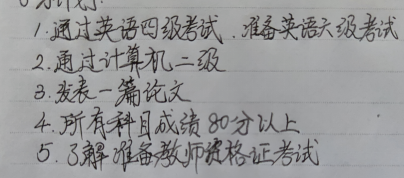 1.通过英语四级考试.准备英语六级考试
2.通过计算机二级
3.发表一篇论文
4.所有科目成绩80分以上
5.了解准备教师资格证考试